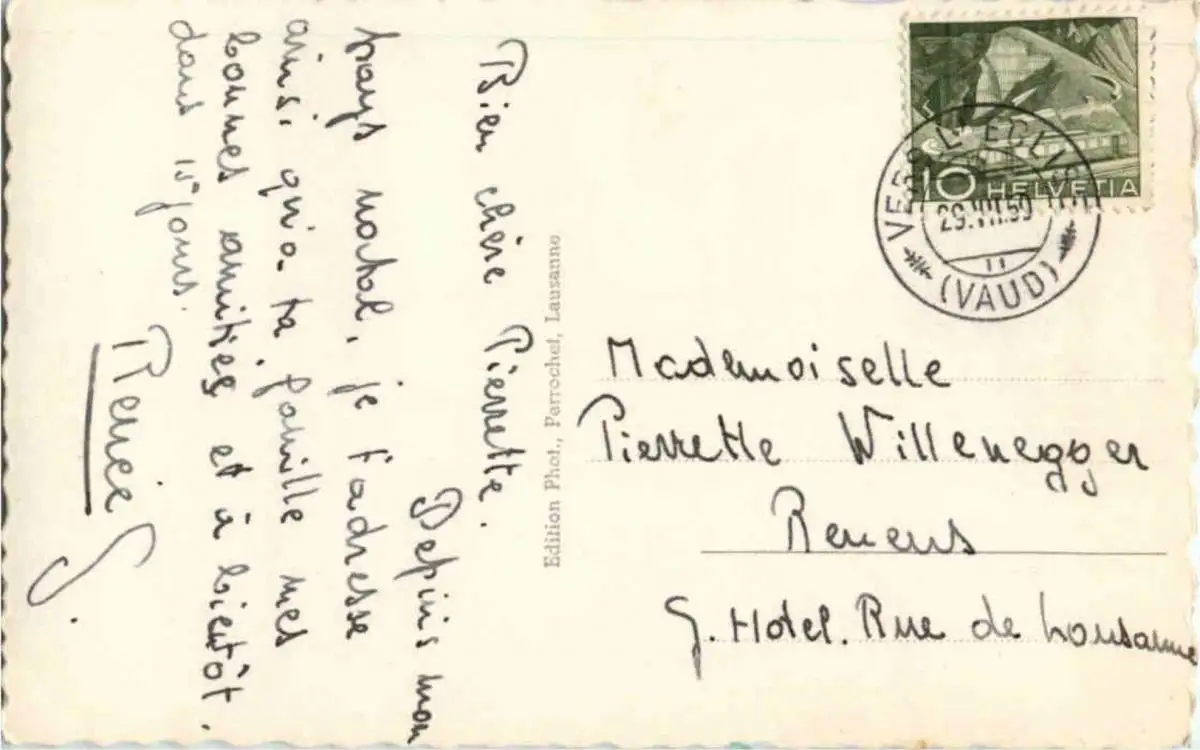 Bien chère Pierrette.
Depuis mon
pays natal, je t'adresse
ainsi qu'à ta famille mes
bonnes amitiés et à bientôt.
dans 15 jours.
Renée S.
Edition Phot., Perrochet, Lausanne
10 HELVETIA
VERS L'EGLISE
29.VII.50
(VAUD)
Mademoiselle
Pierrette Willenegger
Renens
G. Hotel. Rue de Lausanne